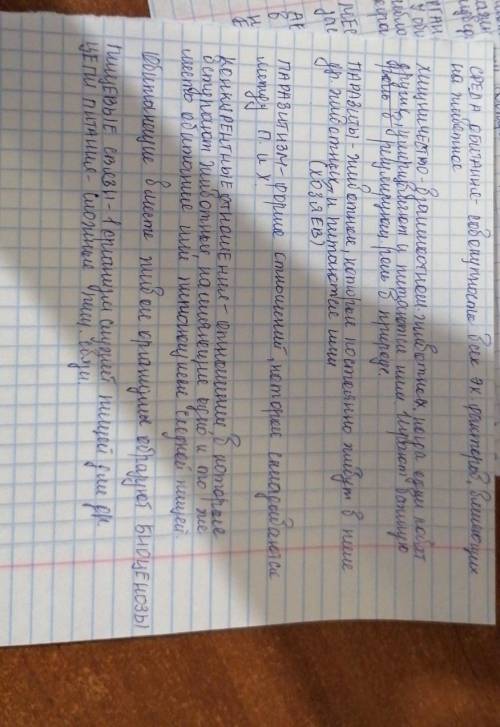 СРЕДА обитания- совокупность всех эк. факторов, влияющих
на животное
Хищничество- взаимоотнош. животных, когда одни ловят
других, умерщвляют и питаются ими. Играют большую
роль в регулирующ. роль в природе.
ПАРАЗИТЫ- животные, которые постоянно живут в теле
др. животных и питаются ими
(ХОЗЯЕВ)
ПАРАЗИТИЗМ- форма отношений, которые складываются
между П. и Х.
КОНКУРЕНТНЫЕ ОТНОШЕНИЯ- отношения в которые
вступают животные, населяющие одно и то же
место обитание или питающиеся сходной пищей
Обитающие вместе живые организмы образуют БИОЦЕНОЗЫ
ПИЩЕВЫЕ связи- 1 организм служит пищей для др.
ЦЕПИ ПИТАНИЯ- сложные пищ. связи